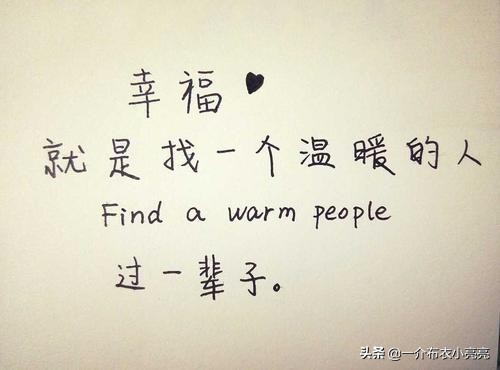 幸福♥
就是找一个温暖的人
Find a warm people
过一辈子。
头条 @一介布衣小亮亮